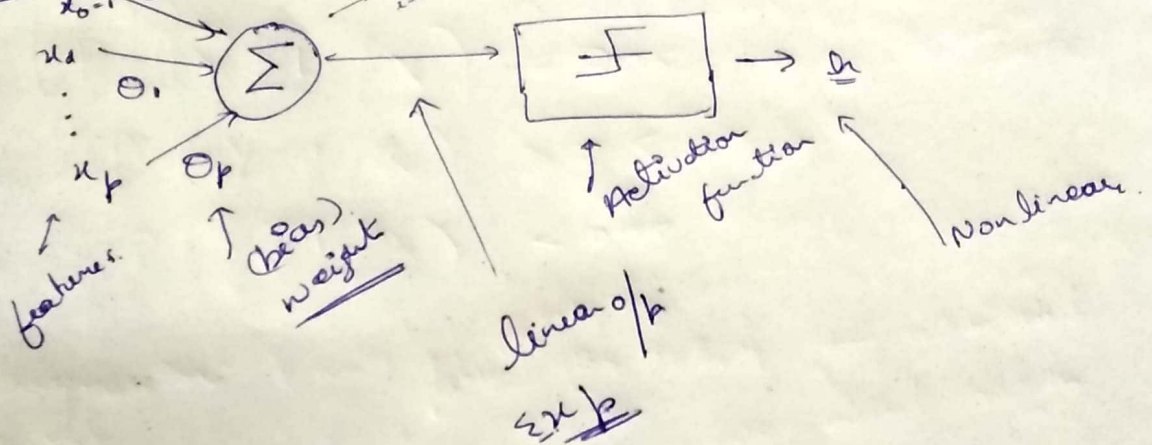 x₁
θ₁
⋮
xₚ
θₚ
Σ
h
features.
(bias)
weight
linear o/p
Activation
function
Nonlinear.